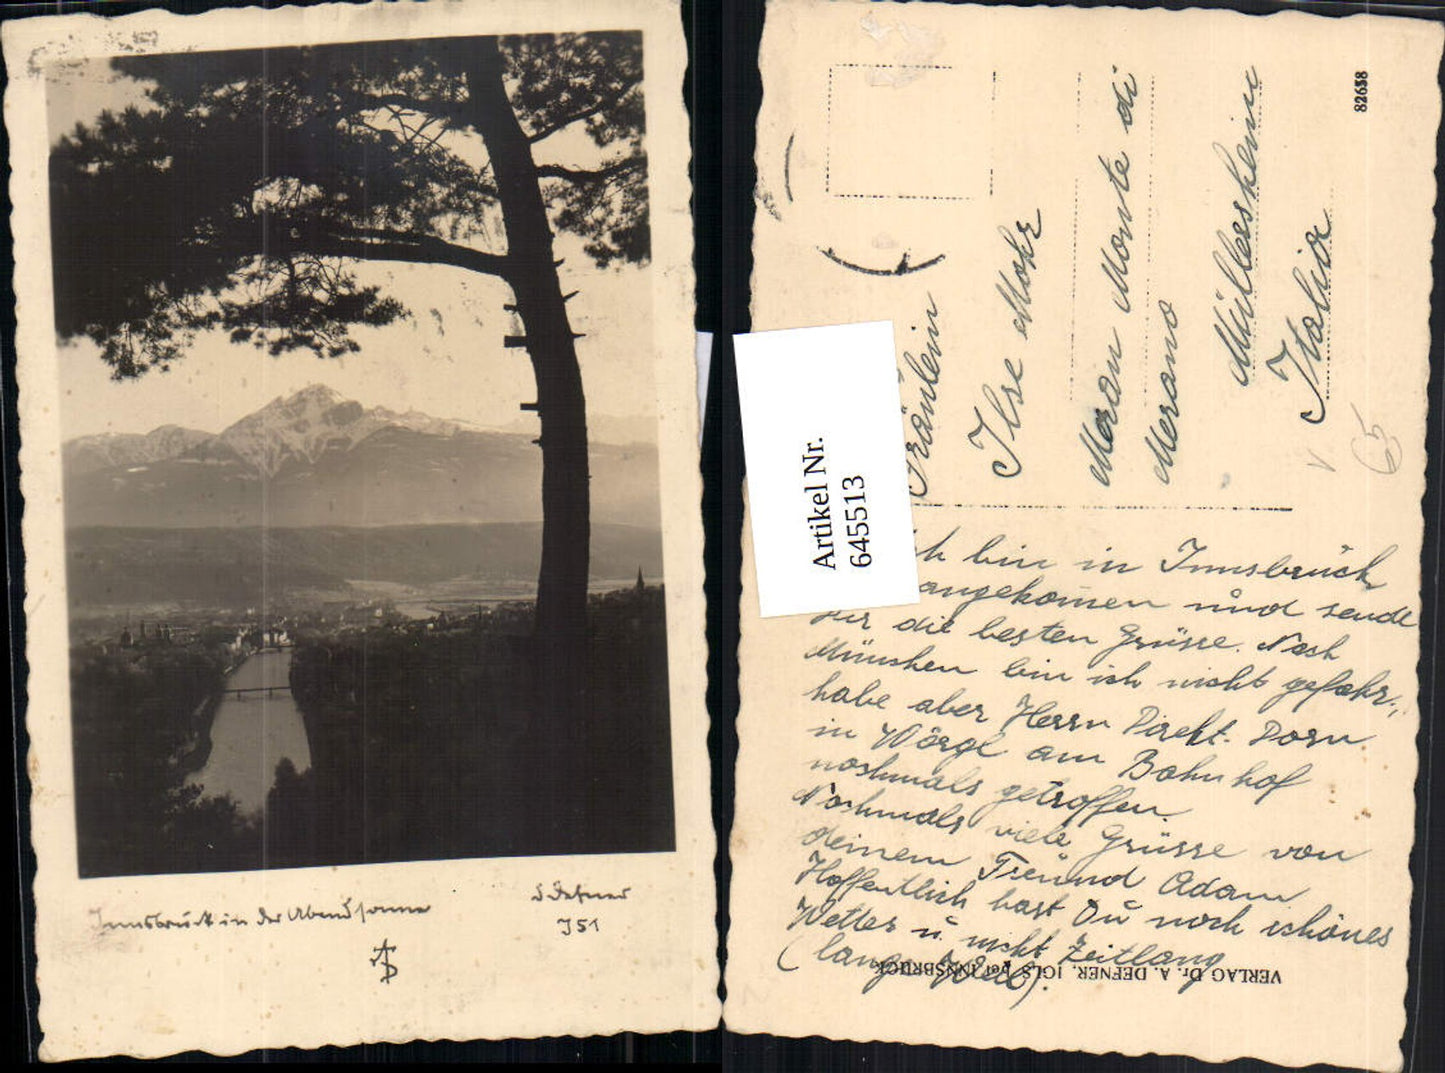 Innsbruck in der Abendsonne
Defner
I51
Artikel Nr.
645513
82658
Fräulein
Ilse Mohr
Meran Monte di
Merano
Müllesheim
Italia
65
ich bin in Innsbrück
angekommen und sende
Dir die besten Grüsse. Nach
München bin ich nicht gefahr.,
habe aber Herrn Direkt. Dorn
in Wörgl am Bahnhof
nochmals getroffen.
Nochmals viele Grüsse von
deinem Freund Adam
Hoffentlich hast Du noch schönes
Wetter u. nicht Zeitlang
(lange Weil).
VERLAG Dr. A. DEFNER, IGLS bei INNSBRUCK